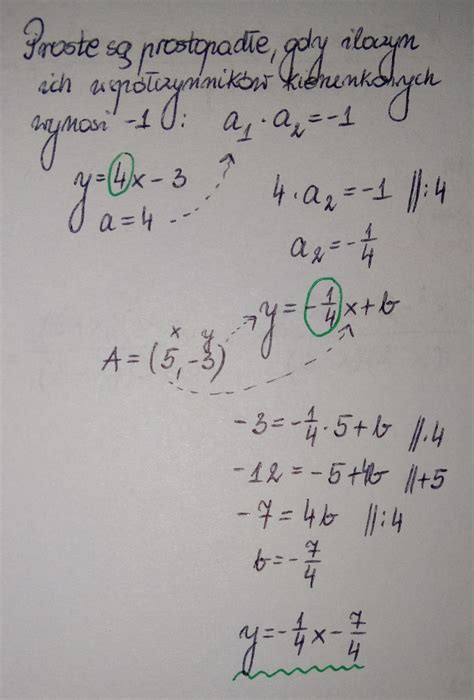 Proste są prostopadłe, gdy iloczyn
ich współczynników kierunkowych
wynosi -1 : a₁ · a₂ = -1
y = 4x - 3
a = 4
4 · a₂ = -1 //:4
a₂ = -1/4
y = -1/4 x + b
x y
A = (5, -3)
-3 = -1/4 · 5 + b //·4
-12 = -5 + 4b //+5
-7 = 4b //:4
b = -7/4
y = -1/4 x - 7/4